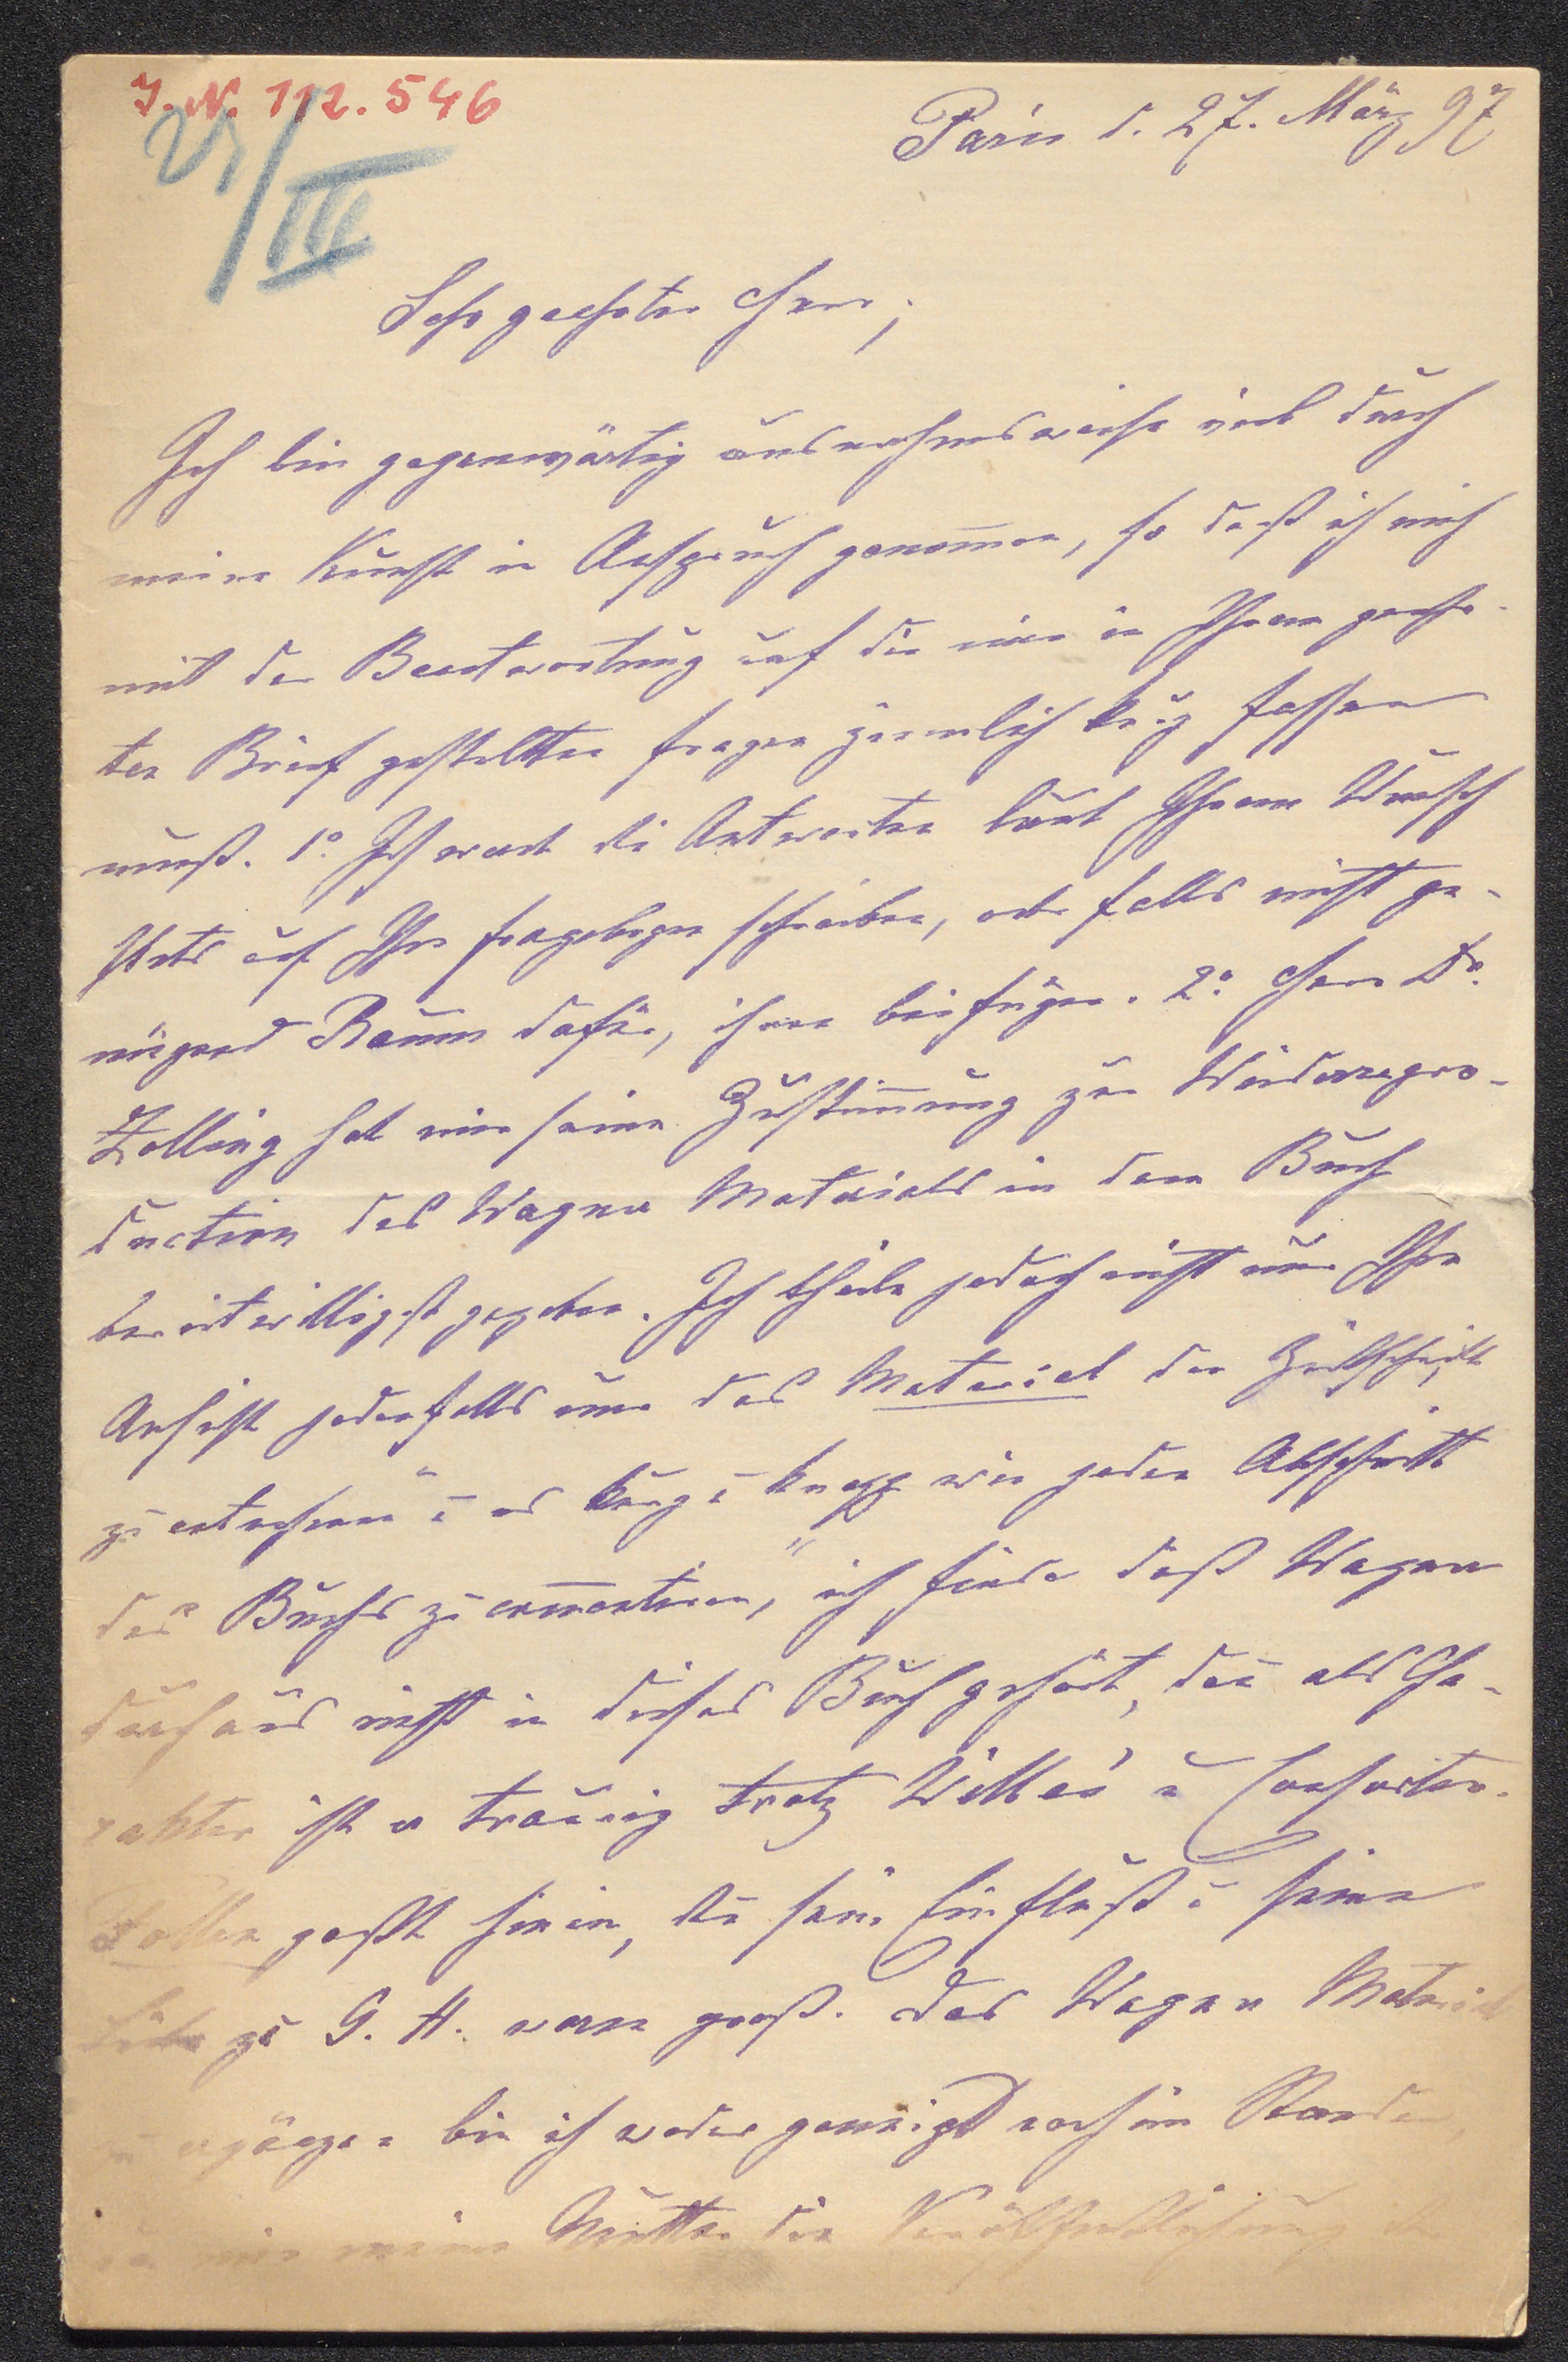 J. N. 112.546
Paris d. 27. März 97
/III
Sehr geehrter Herr;
Ich bin gegenwärtig ausnahmsweise viel durch
meine Kunst in Anspruch genommen, so daß ich mich
mit der Beantwortung auf die mir in Ihrem geehr-
ten Brief gestellten Fragen ziemlich kurz fassen
muß. 1º. Ich werde die Antworten laut Ihrem Wunsch
stets auf Ihre Fragebogen schreiben, oder falls nicht ge-
nügend Raum dafür, ihnen beifügen. 2º. Herr Dr.
Zolling hat mir seine Zustimmung zur Wiederrepro-
duction des Wagner Materials in dem Buch
bereitwilligst gegeben. Ich theile jedoch nicht nur Ihre
Ansicht jedenfalls nur das Material der Zeitschrift
zu entnehmen u es kurz u knapp wie jeden Abschnitt
des Buchs zu commentiren, ich finde daß Wagner
durchaus nicht in dieses Buch gehört, denn als Cha-
rakter ist er traurig trotz Wille's u Consorten.
Follen paßt hinein, denn sein Einfluß u seine
zu G. H. waren groß. Das Wagner Material
bin ich weder geneigt noch im Stande,
mir meine Mutter die Veröffentlichung